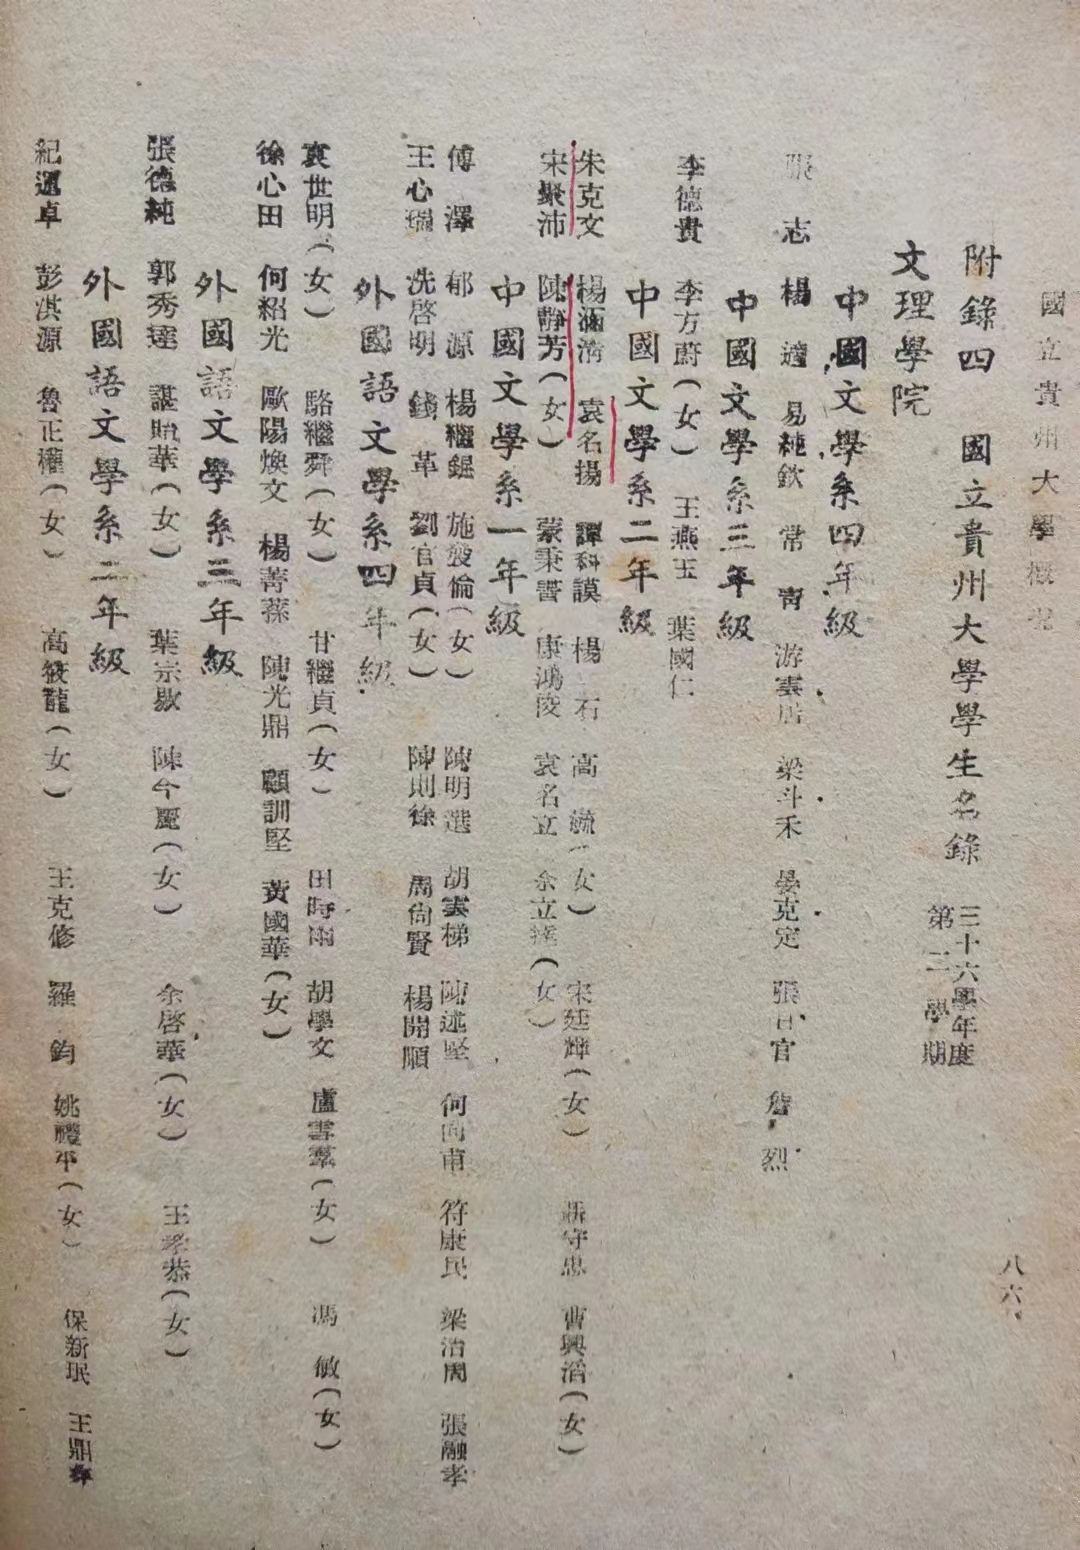 國立貴州大學概況
八六
附錄四 國立貴州大學學生名錄 三十六學年度第二學期
文理學院
中國文學系四年級
張志 楊適 易純欽 常青 游雲居 梁斗禾 晏克定 張日官 詹烈
中國文學系三年級
李德貴 李方蔚(女) 王燕玉 葉國仁
中國文學系二年級
朱克文 楊滙清 袁名揚 譚科謨 楊石 高毓(女) 宋廷輝(女) 守忠 曹興滔(女)
宋聚沛 陳靜芳(女) 蒙秉書 康鴻陵 袁名立 余立達(女)
中國文學系一年級
傅澤 郁源 楊繼錕 施燮倫(女) 陳明選 胡雲梯 陳述堅 何向甫 符康民 梁治周 張融孝
王心瑞 洗啓明 錢革 劉官貞(女) 陳則徐 周尙賢 楊開順
外國語文學系四年級
袁世明(女) 駱繼舜(女) 甘繼貞(女) 田時雨 胡學文 盧雲羣(女) 馮敏(女)
徐心田 何紹光 歐陽煥文 楊菁蓀 陳光鼎 顧訓堅 黃國華(女)
外國語文學系三年級
張德純 郭秀達 諶貽華(女) 葉宗歇 陳今麗(女) 余啓華(女) 王孝恭(女)
外國語文學系二年級
紀運卓 彭淇源 魯正權(女) 高筱龍(女) 王克修 羅鈞 姚禮平(女) 保新珉 王鼎